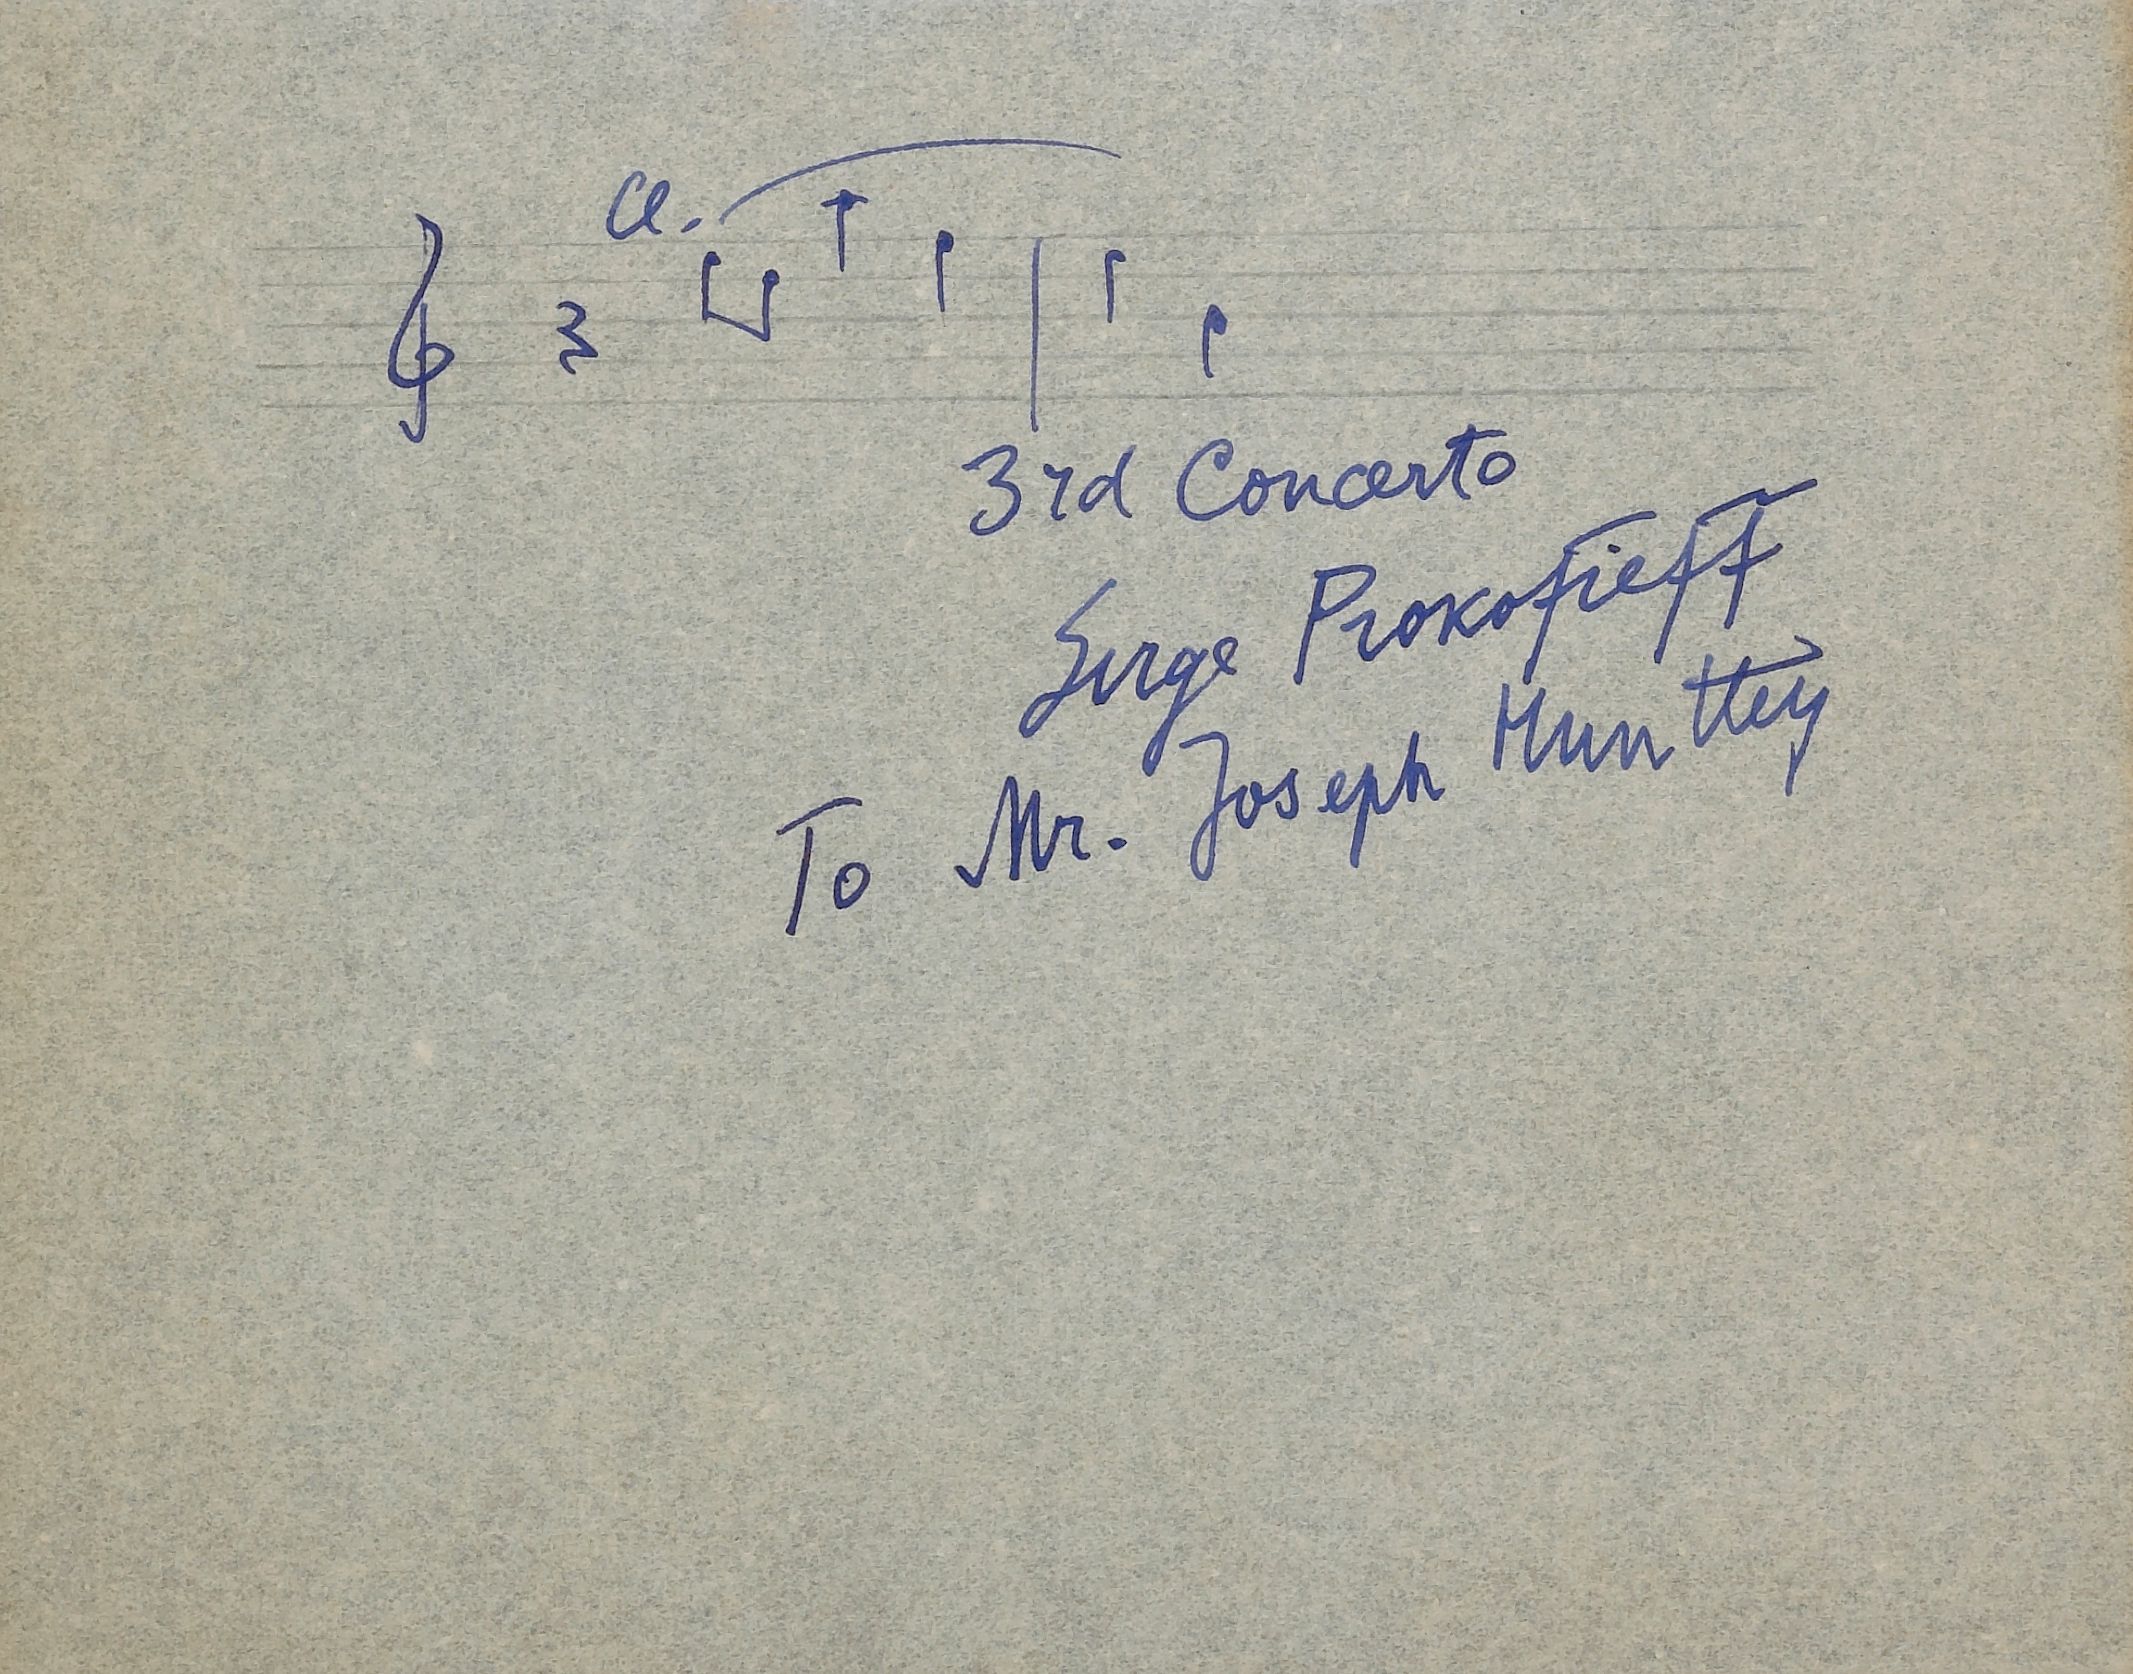 Cl.
3rd Concerto
Serge Prokofieff
To Mr. Joseph Hunttey